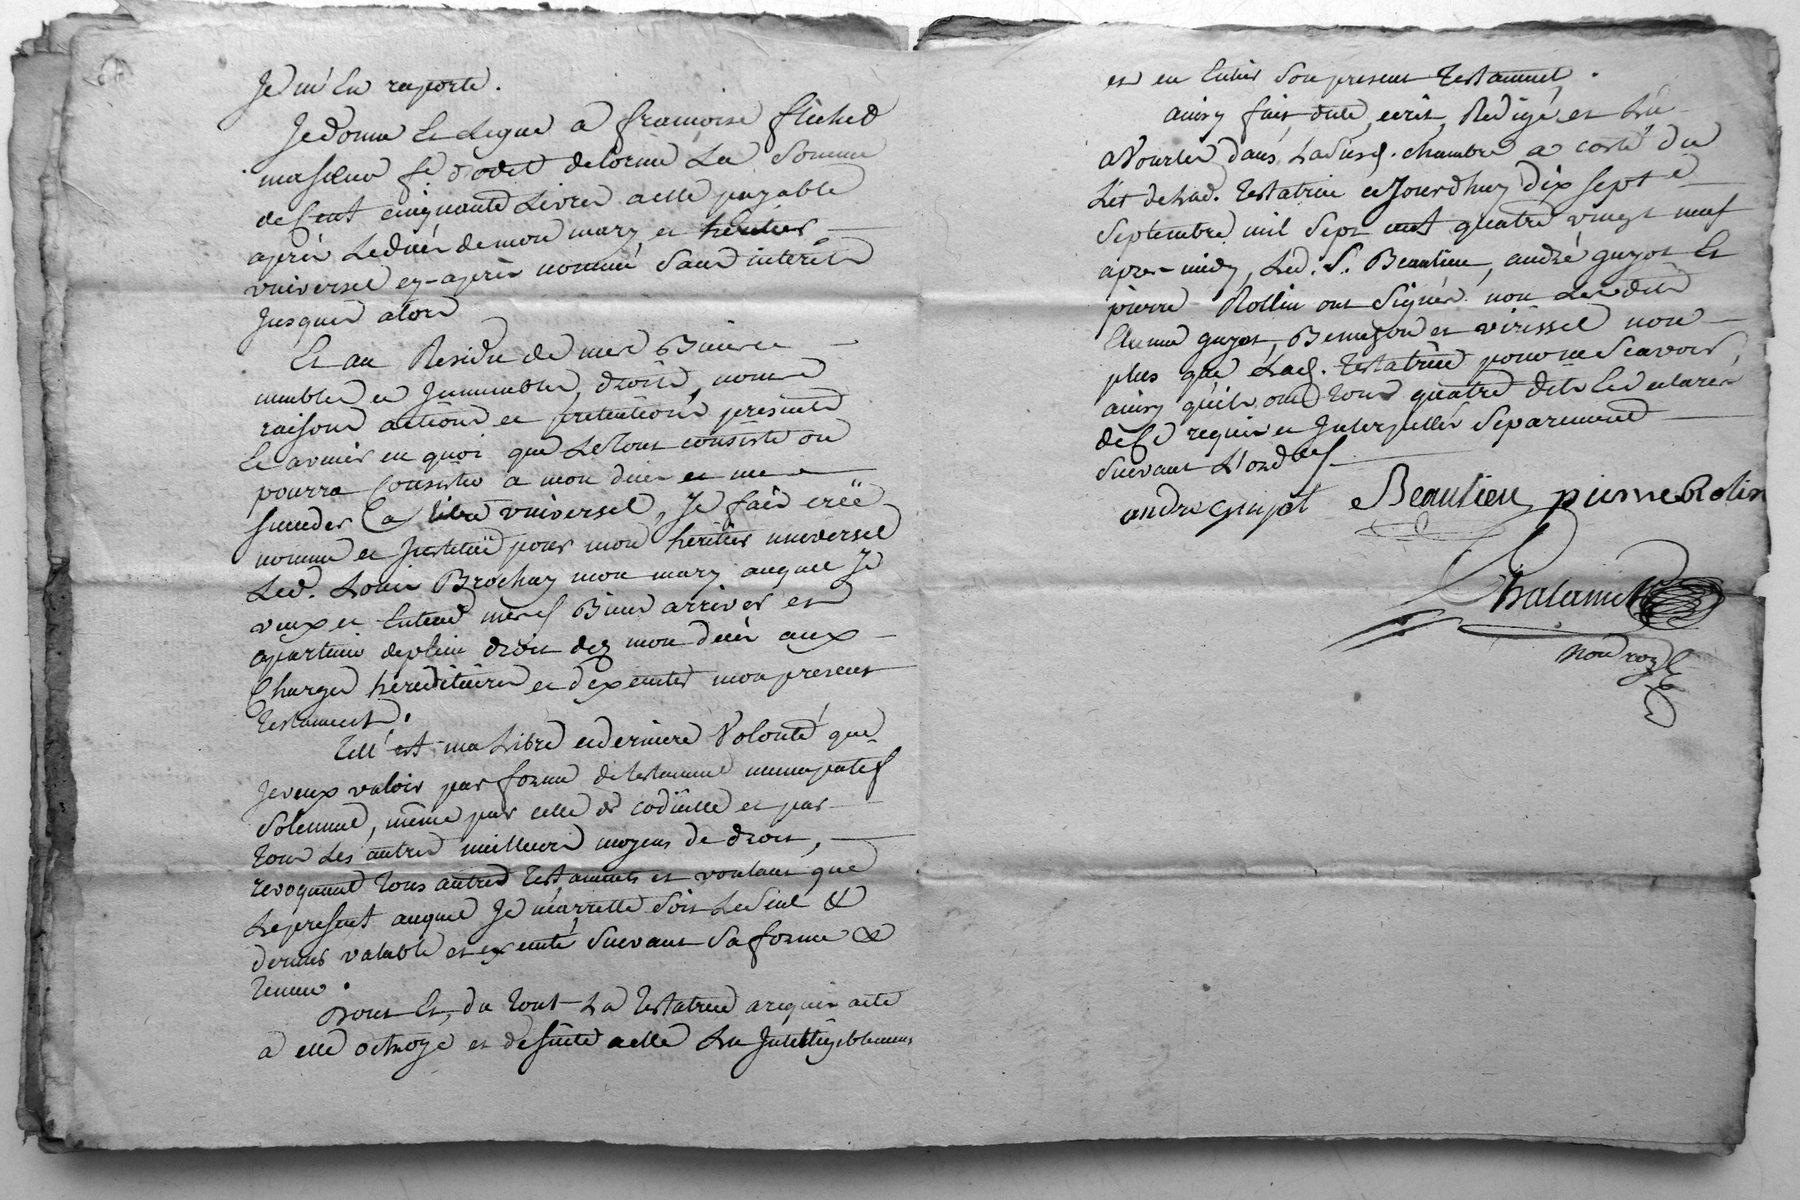 Je m'en raporte.
Jedonne et Legue a françoise flichet
masœur fe d'odet delorme La Somme
deCent cinquante Livres aelle payable
après Ledécés demon mary et héritier
universel cy-après nommé Sans interêts
Jusques alors
Et au Residu de mes Biens
meubles et Immeubles, droits, noms
raisons actions et pretentions presents
et avenir en quoi que Letout consiste ou
pourra Consister a mon décés et me
succeder a titre universel, Je fais créé
nomme et Institüé pour mon héritier universel
Led. Louis Brochay mon mary auquel Je
veux et Entend mesd Biens arriver et
apartenir deplein droit dez mon décés aux
Charges héréditaires et d'exécuter mon present
Testament.
Tell'est ma Libre et derniere Volonté que
Jeveux valoir par forme de testament nuncupatif
Solennel, même par celle de codicille et par
tous Les autres meilleurs moyens de droit,
revoquant tous autres testaments et voulant que
Lepresent auquel Je m'arrette Soit LeSeul &
dernier valable et exécuté Suivant Sa forme &
teneur.
Dont Et, du tout La testatrice arequis acte
a elle octroyé et desuite aelle Lu Intelligiblement
et en Entier Son present testament.
ainsy fait, dicté, ecrit, Redigé et Lû
aVourles dans Lasusd. chambre a costé du
Lit deLad. testatrice cejourd'huy dix sept
Septembre mil Sept cent quatre vingt neuf
apres-midy, Led. S. Beaulieu, andré guyot Et
pierre Rollin ont Signés non Lesdits
guyot, et virissel non
plus que Lad. testatrice pour ne Scavoir,
ainsy qu'ils ont tous quatre dit et declaré
deCe requis et Interpellés Separement
suivant L'ordce
andre guyot Beaulieu pierre Rolin
Chalamel
Not. royl